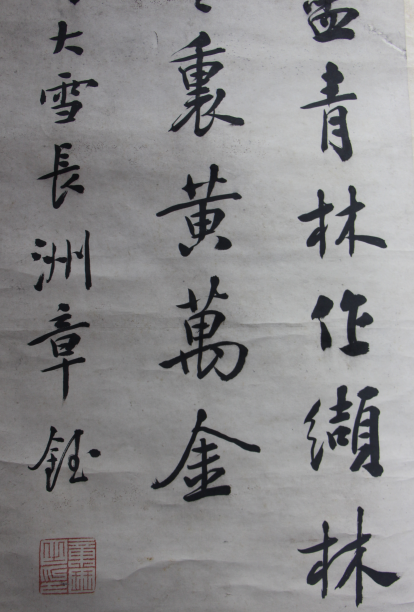 青林作纈林
裏黄萬金
大雪長洲章鈺